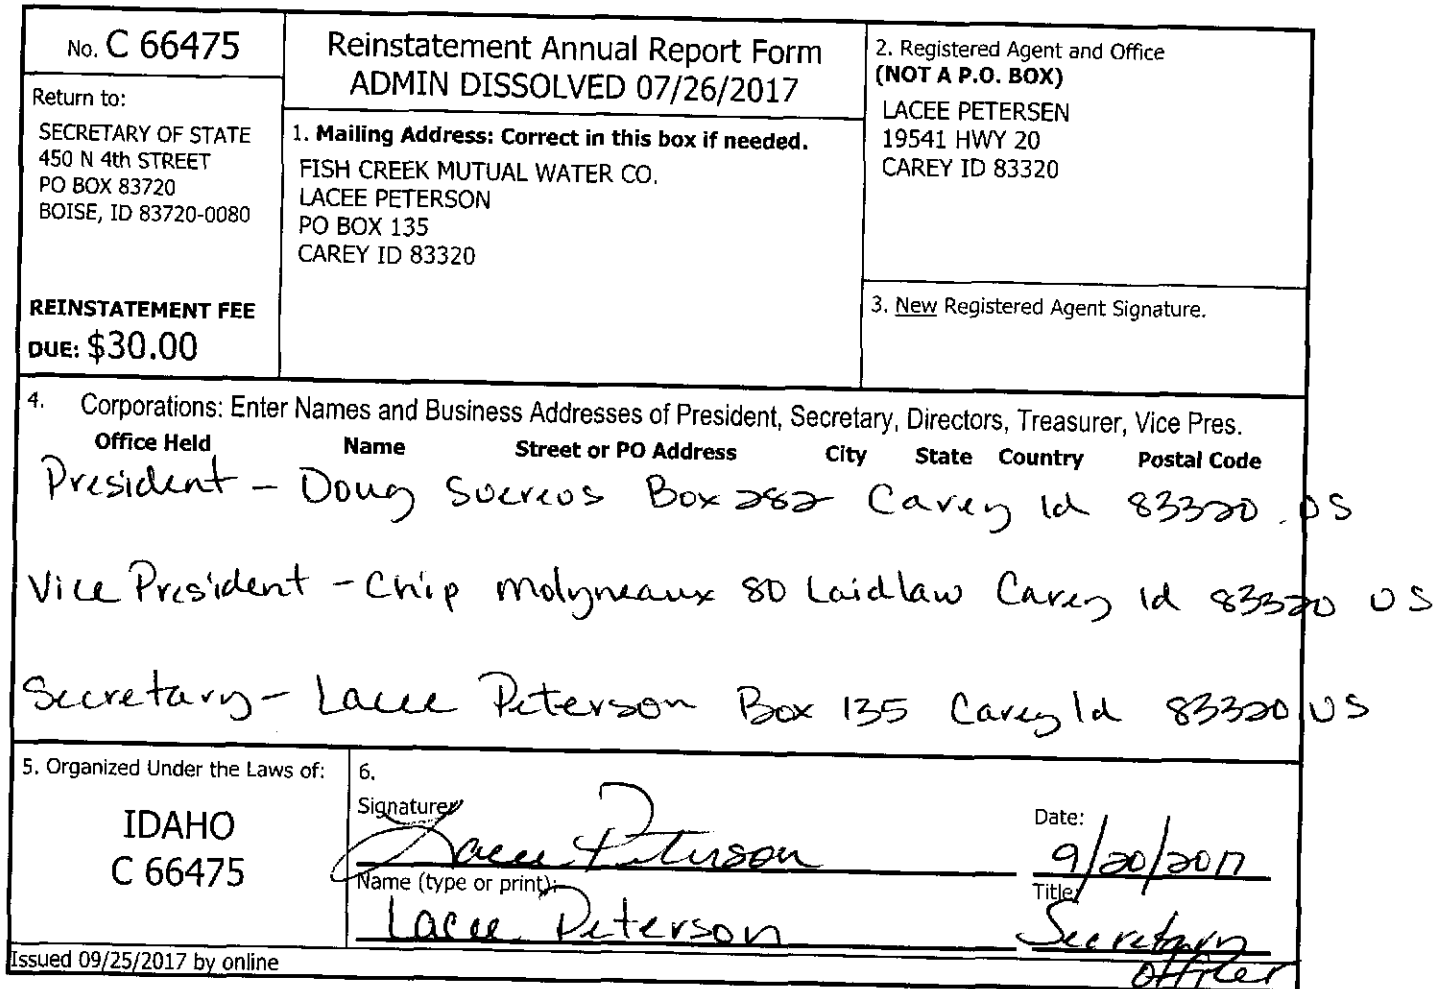 No. C 66475
Return to:
SECRETARY OF STATE
450 N 4th STREET
PO BOX 83720
BOISE, ID 83720-0080
REINSTATEMENT FEE
DUE: $30.00
Reinstatement Annual Report Form
ADMIN DISSOLVED 07/26/2017
1. Mailing Address: Correct in this box if needed.
FISH CREEK MUTUAL WATER CO.
LACEE PETERSON
PO BOX 135
CAREY ID 83320
2. Registered Agent and Office
(NOT A P.O. BOX)
LACEE PETERSEN
19541 HWY 20
CAREY ID 83320
3. New Registered Agent Signature.
4. Corporations: Enter Names and Business Addresses of President, Secretary, Directors, Treasurer, Vice Pres.
Office Held Name Street or PO Address City State Country Postal Code
President - Doug Box 282 Carey Id 83320 US
Vice President - Chip Molyneaux 80 Laidlaw Carey Id 83320 US
Secretary - Lacee Peterson Box 135 Carey Id 83320 US
5. Organized Under the Laws of:
IDAHO
C 66475
6.
Signature:
Lacee Peterson
Date:
9/20/2017
Name (type or print):
Lacee Peterson
Title:
Secretary
officer
Issued 09/25/2017 by online